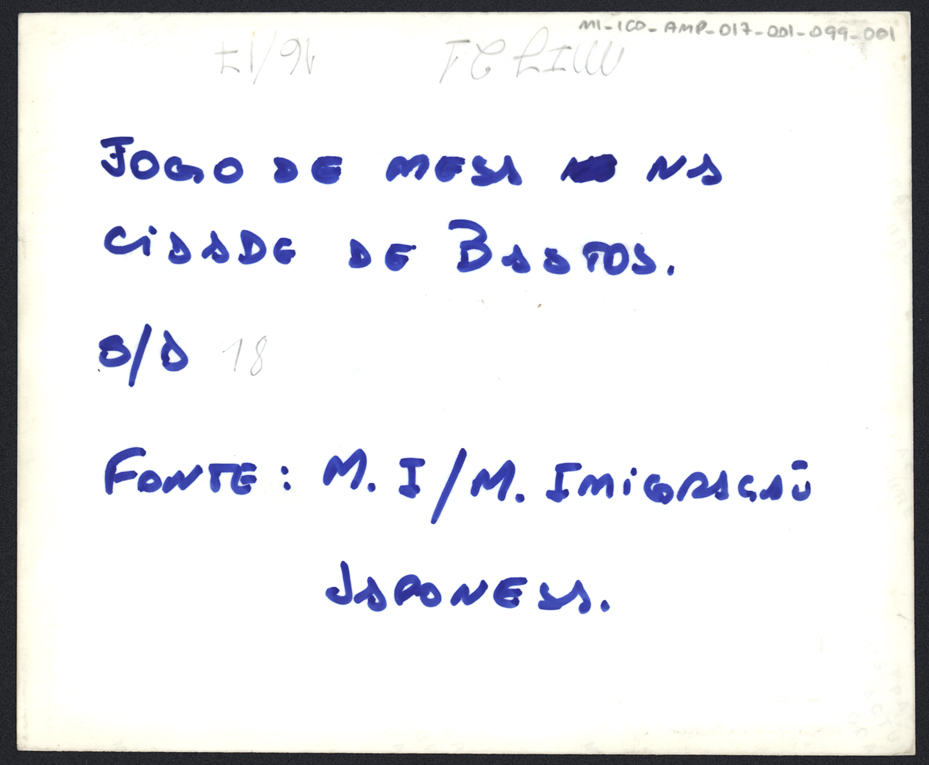 MI-ICO-AMP-017-001-099-001
JOGO DE MESA NA
CIDADE DE BASTOS.
S/D 18
FONTE: M. I/M. IMIGRAÇÃO
JAPONESA.